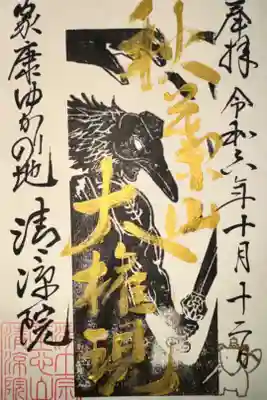 奉拝 令和六年十月十二日
秋葉山
大権現
家康ゆかりの地 清涼院